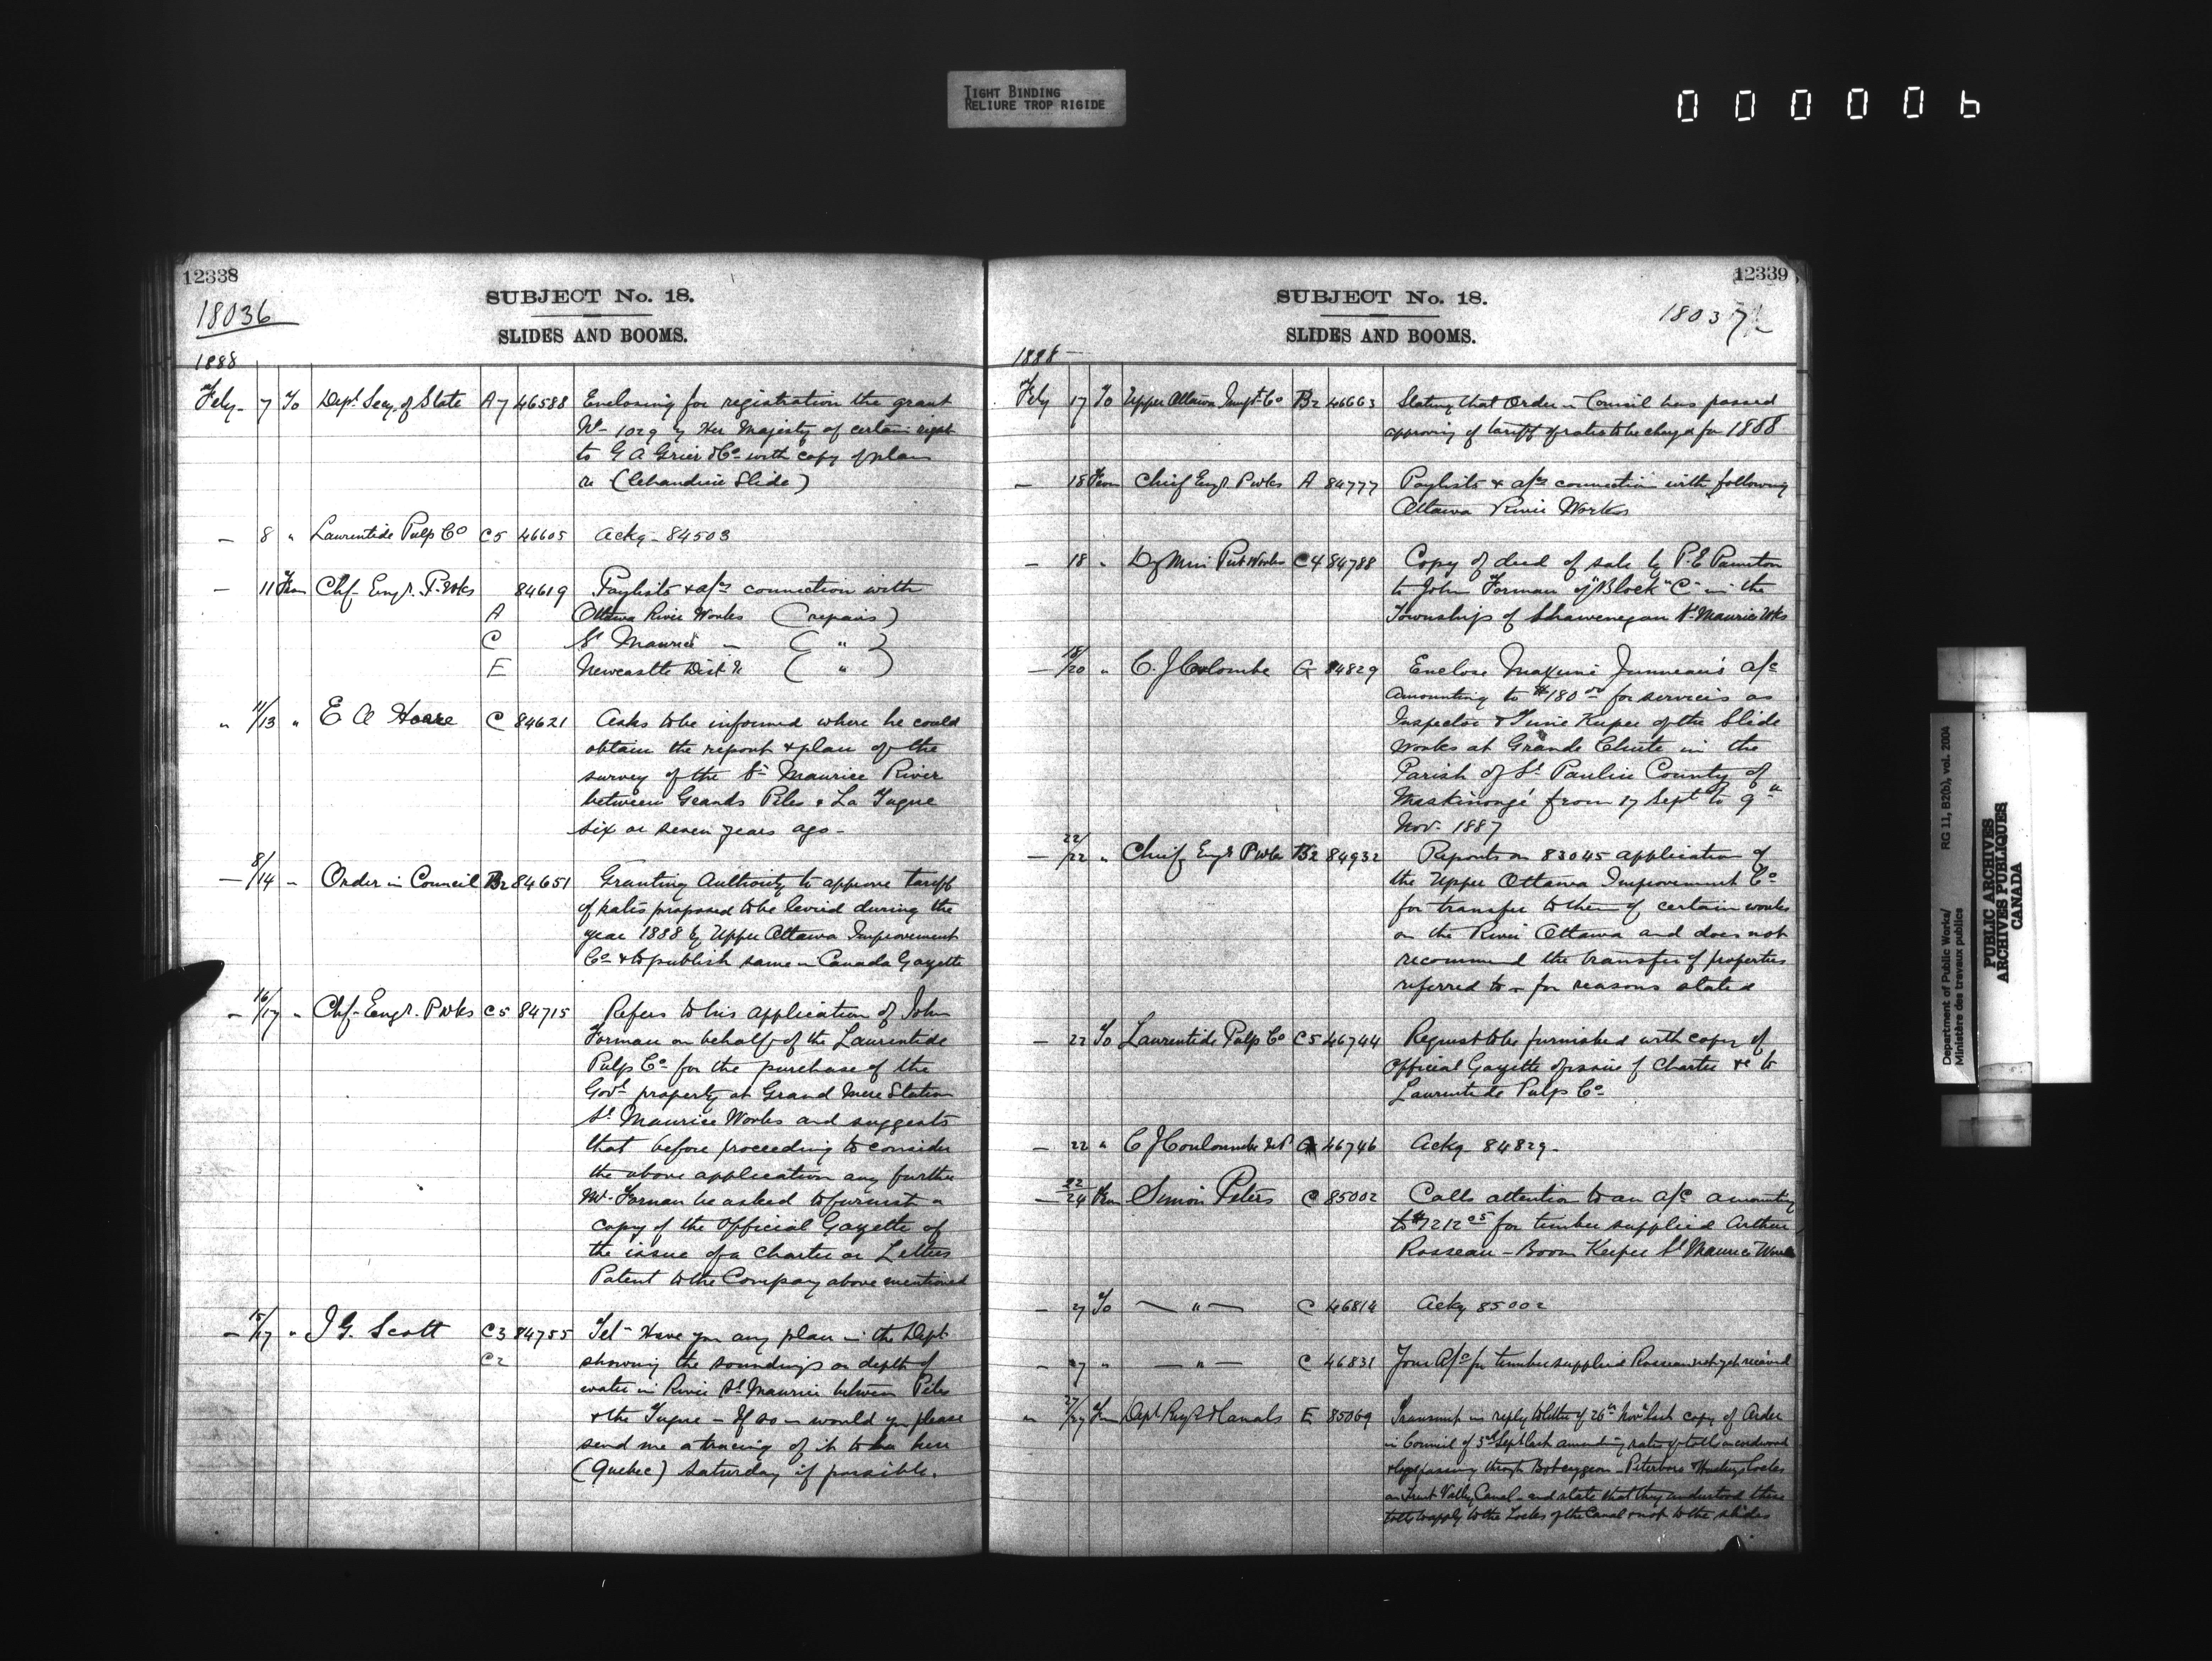 TIGHT BINDING
RELIURE TROP RIGIDE
000006
12338
SUBJECT No. 18.
18036
SLIDES AND BOOMS.
1888
Feby - 7 To Dept. Secy. of State A7 46588 Enclosing for registration the grant
No - 1029 by Her Majesty of certain right
to G A Grier & Co with copy of plan
re (Chaudiere Slide)
— 8 " Laurentide Pulp Co C5 46605 Ackg - 84503
— 11 From Chf. Engr. P. Wks 84619 Paylists & a/cs connection with
A Ottawa River Works (repairs)
C St Maurice — ( " )
E Newcastle Dist ( " )
" 11/13 " E A Hoare C 84621 Asks to be informed where he could
obtain the report & plan of the
survey of the St Maurice River
between Grands Piles & La Tuque
six or seven years ago -
— 8/14 - Order in Council B2 84651 Granting Authority to approve tariff
of rates proposed to be levied during the
year 1888 by Upper Ottawa Improvement
Co & to publish same in Canada Gazette
— 16/17 " Chf. Engr. P Wks C5 84715 Refers to his application of John
Forman on behalf of the Laurentide
Pulp Co for the purchase of the
Govt property at Grand Mere Station
St Maurice Works and suggests
that before proceeding to consider
the above application any further
Mr Forman be asked to furnish a
copy of the Official Gazette of
the issue of a Charter or Letters
Patent to the Company above mentioned
— 15/17 " J G. Scott C3 84755 Tel - Have you any plan in the Dept
C2 showing the soundings or depth of
water in River St Maurice between Piles
& the Tuque - If so - would you please
send me a tracing of it to be here
(Quebec) Saturday if possible.
12339
SUBJECT No. 18.
18037
SLIDES AND BOOMS.
1888 —
Feby 17 To Upper Ottawa Impt. Co B2 46663 Stating that Order in Council has passed
approving of tariff of rates to be charged for 1888
— 18 From Chief Engr. P Wks A 84777 Paylists & a/cs connection with following
Ottawa River Works
— 18 " Dy Min Pub Works C4 84788 Copy of deed of sale by P. E Panneton
to John Forman of "Block" C - in the
Townships of Shawenegan St Maurice Wks
— 18/20 " C. J Colombe G 84829 Enclose Maxime Juneau's a/c
amounting to $180 00 for services as
Inspector & Time Keeper of the Slide
Works at Grande Chute in the
Parish of St Pauline County of
Maskinongé from 17 Sept to 9th
Nov. 1887
— 22/22 " Chief Engr P Wks B2 84932 Reports on 83045 application of
the Upper Ottawa Improvement Co
for transfer to them of certain works
on the River Ottawa and does not
recommend the transfer of properties
referred to - for reasons stated
— 22 To Laurentide Pulp Co C5 46744 Request to be furnished with copy of
Official Gazette of issue of Charter &c to
Laurentide Pulp Co -
— 22 " C J Coulombe G 46746 Ackg 84829 -
— 22/24 From Simon Peters C 85002 Calls attention to an a/c amounting
to $1212 05 for timber supplied Arthur
Rosseau - Boom Keeper St Maurice Works
— 27 To — " — C 46814 Ackg 85002
— 27 " — " — C 46831 Your A/c for timber supplied Rosseau not yet received
" 27/27 From Dept Rys & Canals E 85069 Transmit in reply to letter of 26th Novr last copy of Order
in Council of 5th Sept last amending rates of tolls on cordwood
& logs passing through Bobcaygeon - Peterboro & Hastings Locks
on Trent Valley Canal - and state that they understood these
tolls to apply to the Locks of the Canal & not to the slides
Department of Public Works/ RG 11, B2(b), vol. 2004
Ministère des travaux publics
PUBLIC ARCHIVES
ARCHIVES PUBLIQUES
CANADA